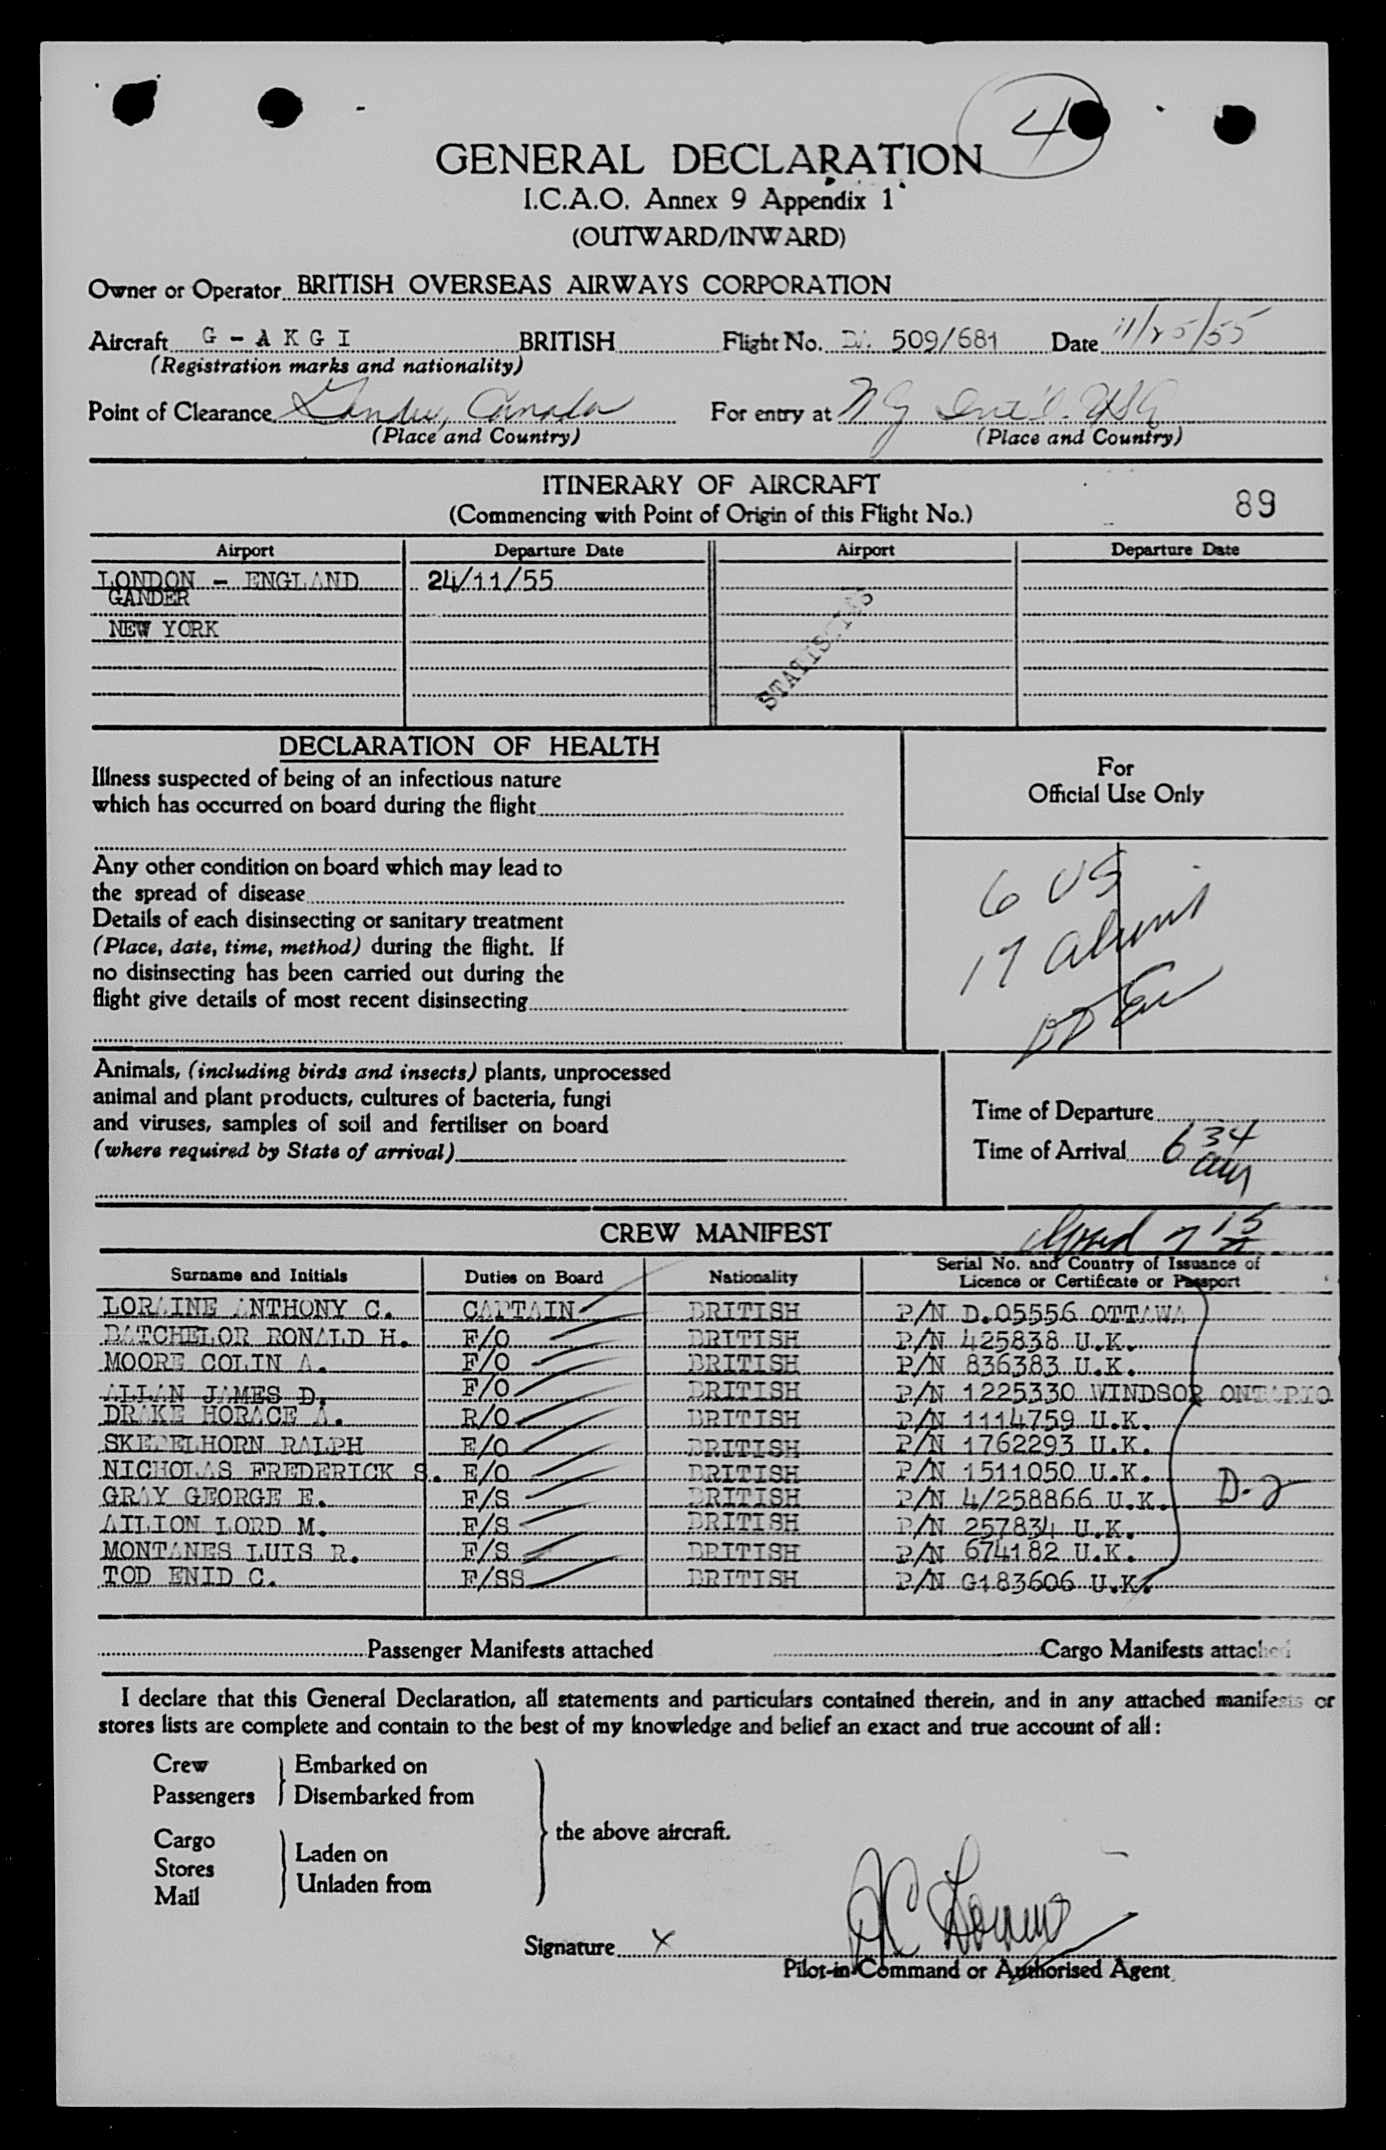 4
GENERAL DECLARATION
I.C.A.O. Annex 9 Appendix 1
(OUTWARD/INWARD)
Owner or Operator BRITISH OVERSEAS AIRWAYS CORPORATION
Aircraft G - A K G I BRITISH Flight No. 509/681 Date 11/25/55
(Registration marks and nationality)
Point of Clearance Gander, Canada For entry at NY Int'l. USA
(Place and Country) (Place and Country)
ITINERARY OF AIRCRAFT
(Commencing with Point of Origin of this Flight No.) 89
Airport Departure Date Airport Departure Date
LONDON - ENGLAND 24/11/55
GANDER
NEW YORK
STATISTICS
DECLARATION OF HEALTH
Illness suspected of being of an infectious nature
which has occurred on board during the flight
Any other condition on board which may lead to
the spread of disease
Details of each disinsecting or sanitary treatment
(Place, date, time, method) during the flight. If
no disinsecting has been carried out during the
flight give details of most recent disinsecting
For
Official Use Only
6 US
17 aliens
Animals, (including birds and insects) plants, unprocessed
animal and plant products, cultures of bacteria, fungi
and viruses, samples of soil and fertiliser on board
(where required by State of arrival)
Time of Departure
Time of Arrival 6 34 am
CREW MANIFEST 7 15
Surname and Initials Duties on Board Nationality Serial No. and Country of Issuance of Licence or Certificate or Passport
LORAINE ANTHONY C. CAPTAIN BRITISH P/N D.05556 OTTAWA
BATCHELOR RONALD H. F/O BRITISH P/N 425838 U.K.
MOORE COLIN A. F/O BRITISH P/N 836383 U.K.
ALLAN JAMES D. F/O BRITISH P/N 1225330 WINDSOR ONTARIO
DRAKE HORACE A. R/O BRITISH P/N 1114759 U.K.
SKEPELHORN RALPH E/O BRITISH P/N 1762293 U.K.
NICHOLAS FREDERICK S. E/O BRITISH P/N 1511050 U.K.
GRAY GEORGE E. F/S BRITISH P/N 4/258866 U.K. D-2
AILION LORD M. F/S BRITISH P/N 257834 U.K.
MONTANES LUIS R. F/S BRITISH P/N 674182 U.K.
TOD ENID C. F/SS BRITISH P/N G183606 U.K.
Passenger Manifests attached Cargo Manifests attached
I declare that this General Declaration, all statements and particulars contained therein, and in any attached manifests or
stores lists are complete and contain to the best of my knowledge and belief an exact and true account of all:
Crew Embarked on
Passengers Disembarked from
the above aircraft.
Cargo Laden on
Stores
Mail Unladen from
Signature X AC Loraine
Pilot-in-Command or Authorised Agent